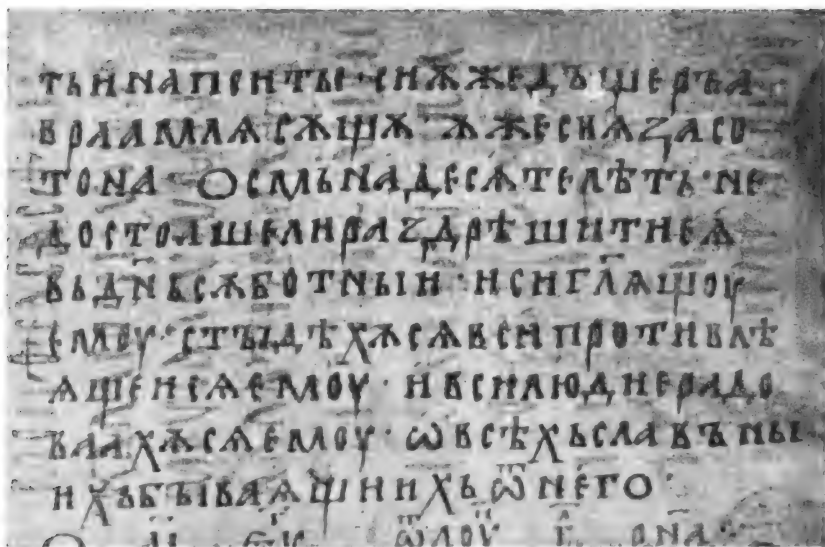 тьинапенты·сиѫжедъщерьа
враамлѧсѫщѫ·ѫжесвѧзасо
тона·осмьнадесѧтелѣть·не
достоꙗшелираздрѣшитиеѧ
вьднвсѫботныи·исигл҃ѧщоу
емоу·стыдѣхѫсѧвсипротивлѣ
ѧщеисѧемоу·ивсилюдиерадо
ваахѫсѧемоу·ѡвсѣхьславъны
ихъбываѧщиихьѿнего·